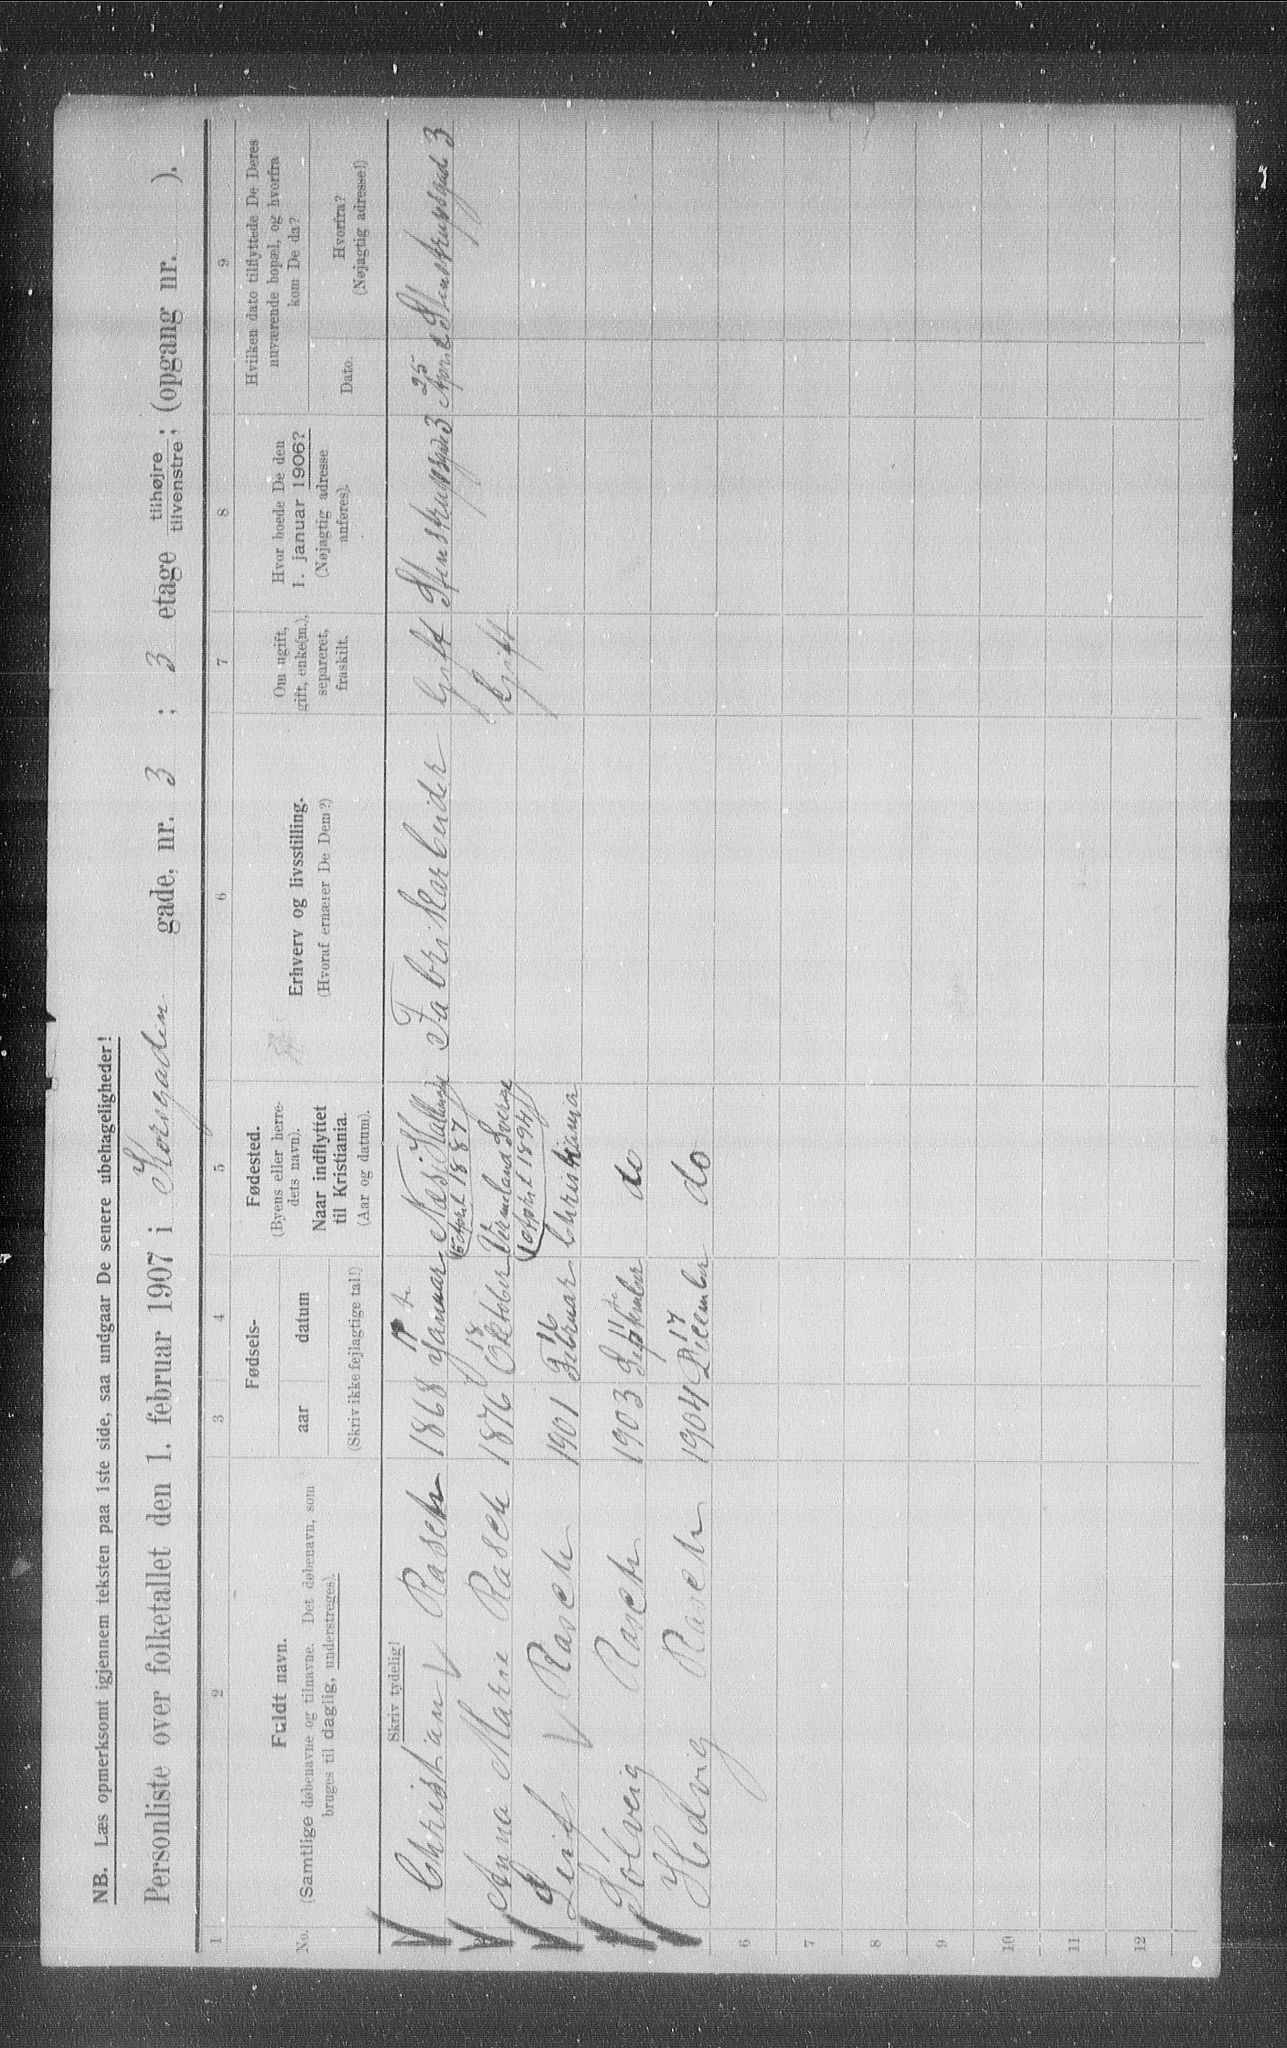 NB. Læs opmerksomt igjennem teksten paa 1ste side, saa undgaar De senere ubehageligheder!
Personliste over folketallet den 1. februar 1907 i Korsgaden gade, nr. 3 ; 3 etage tilhøjre tilvenstre; (opgang nr. ).
1 2 3 4 5 6 7 8 9
No.
Fuldt navn.
(Samtlige døbenavne og tilnavne. Det døbenavn, som
bruges til daglig, understreges).
Fødsels-
aar datum
(Skriv ikke fejlagtige tal!)
Fødested.
(Byens eller herre-
dets navn).
Naar indflyttet
til Kristiania.
(Aar og datum).
Erhverv og livsstilling.
(Hvoraf ernærer De Dem?)
Om ugift,
gift, enke(m.),
separeret,
fraskilt.
Hvor boede De den
1. januar 1906?
(Nøjagtig adresse
anføres).
Hvilken dato tilflyttede De Deres
nuværende bopæl, og hvorfra
kom De da?
Dato.
Hvorfra?
(Nøjagtig adresse!)
Skriv tydelig!
Christian Rasch 1868 Januar Næs Fabrikarbeider Gift Stenstrupsgade 3 25 April Stenstrupsgad 3
April 1887
Anna Marie Rasch 1876 18 Oktober Vermeland Sverige Gift
April 1894
Leif Rasch 1901 16 Februar Christiania
Solveig Rasch 1903 11 September do
Hedvig Rasch 1904 17 December do
6
7
8
9
10
11
12